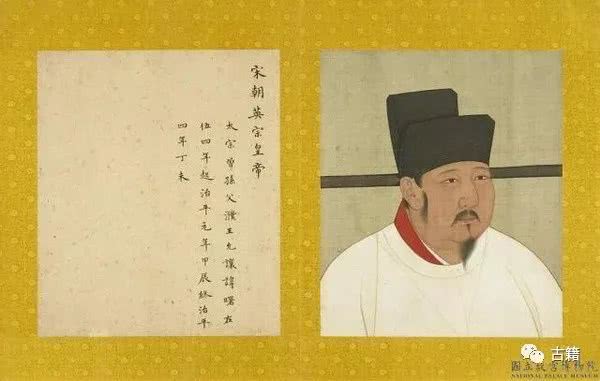 宋朝英宗皇帝
太宗曾孫父濮王允讓諱曙在
位四年起治平元年甲辰終治平
四年丁未
古籍
國立故宮博物院
NATIONAL PALACE MUSEUM